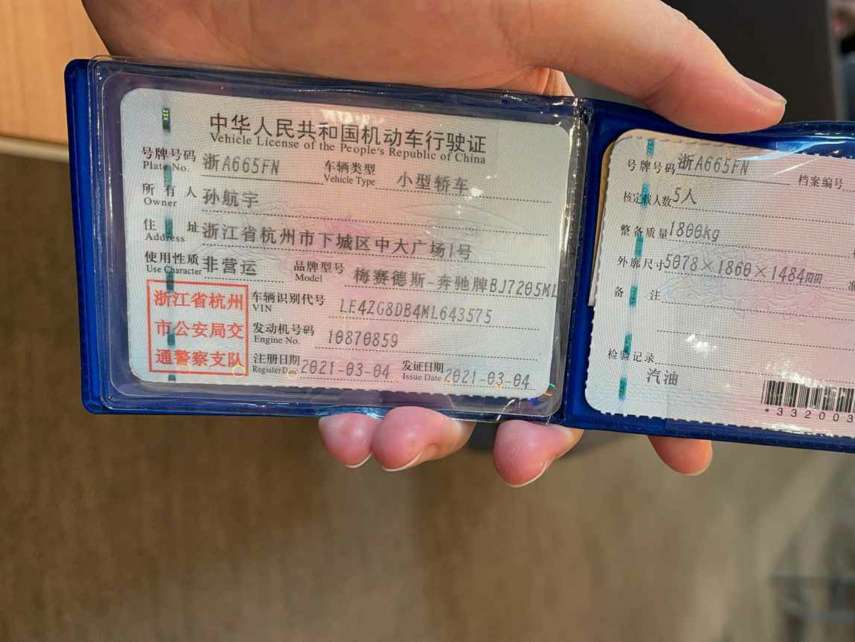 中华人民共和国机动车行驶证
Vehicle License of the People's Republic of China
号牌号码 浙A665FN 车辆类型 小型轿车
Plate No. Vehicle Type
所有人 孙航宇
Owner
住址 浙江省杭州市下城区中大广场1号
Address
使用性质 非营运 品牌型号 梅赛德斯-奔驰牌BJ7205ML
Use Character Model
浙江省杭州
市公安局交
通警察支队
车辆识别代号 LE4ZG8DB4ML643575
VIN
发动机号码 10870859
Engine No.
注册日期 2021-03-04 发证日期 2021-03-04
Register Date Issue Date
号牌号码 浙A665FN 档案编号
核定载人数 5人
整备质量 1800kg
外廓尺寸 5078×1860×1484mm
备注
检验记录
汽油
*332003